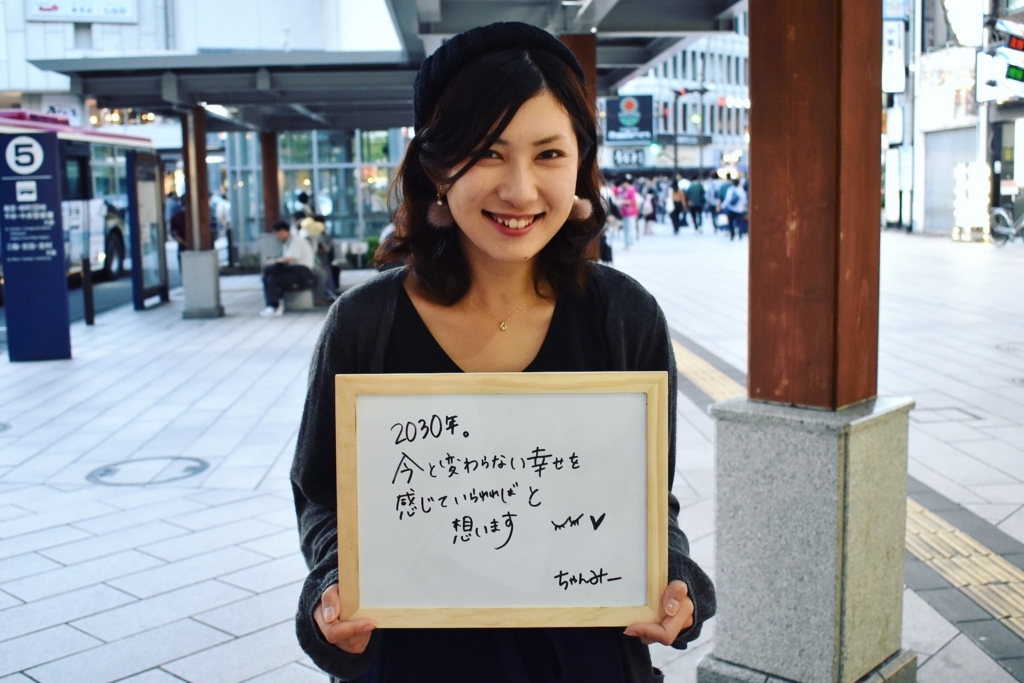 2030年。
今と変わらない幸せを
感じていられればと
想います
ちゃんみー
5